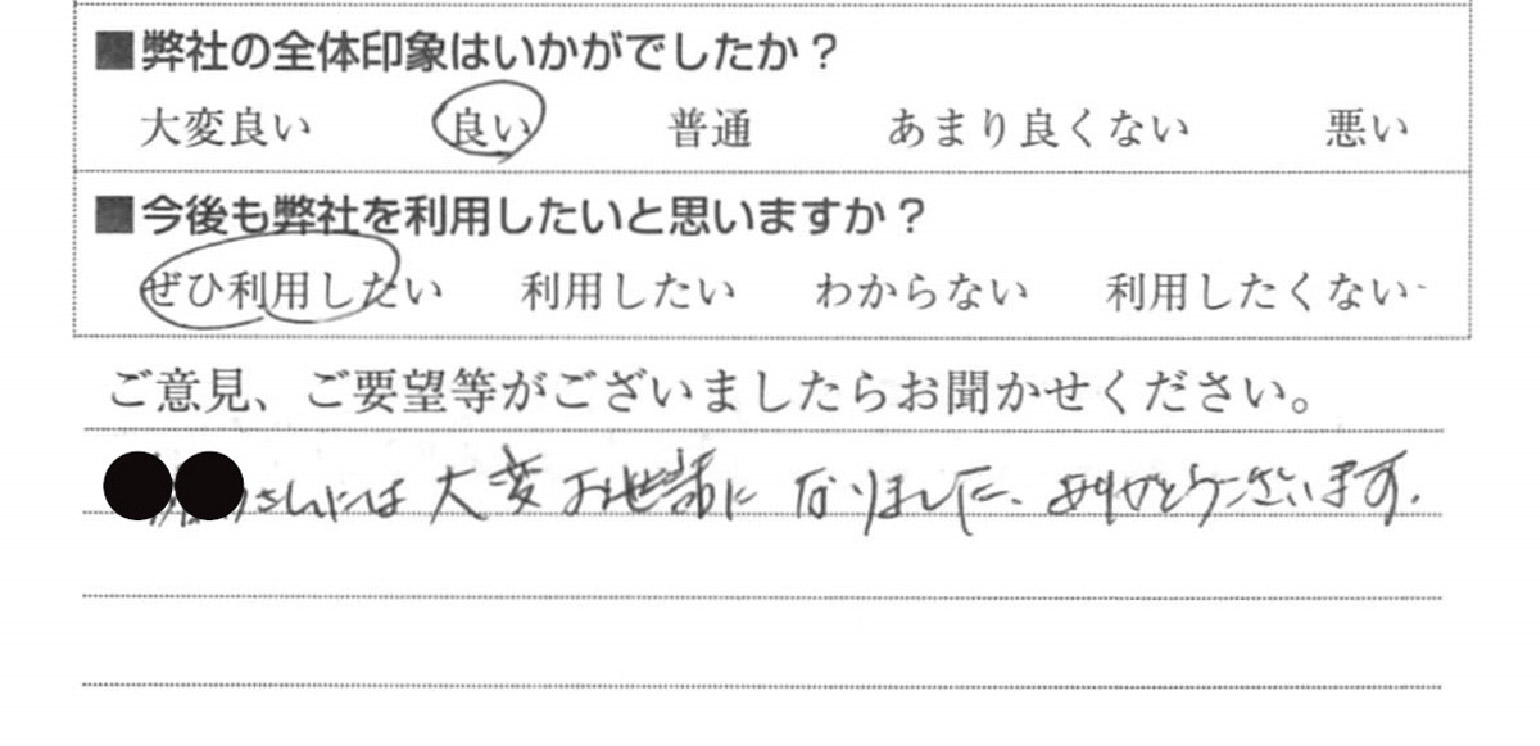 ■弊社の全体印象はいかがでしたか？
大変良い 良い 普通 あまり良くない 悪い
■今後も弊社を利用したいと思いますか？
ぜひ利用したい 利用したい わからない 利用したくない
ご意見、ご要望等がございましたらお聞かせください。
さんには大変お世話になりました、ありがとうございます.